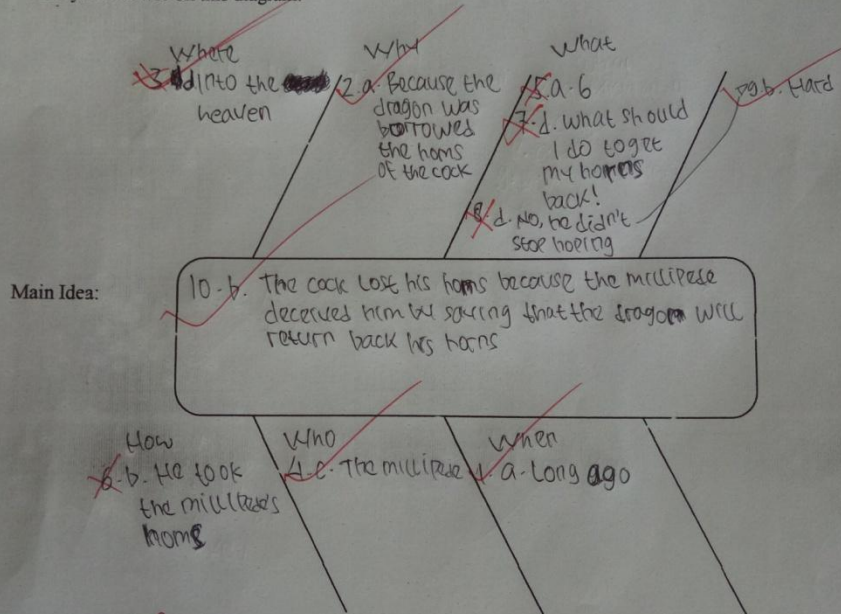 Where
3 d into the
heaven
Why
2.a. Because the
dragon was
borrowed
the horns
of the cock
What
5.a-6
7-d. what should
I do to get
my horns
back!
8.d. No, he didn't
stop hoping
9.b. Hard
Main Idea:
10-b. The cock lost his horns because the millipede
deceived him by saying that the dragon will
return back his horns
How
6-b. He took
the millipede's
horns
Who
4.c. The millipede
When
1. a-Long ago